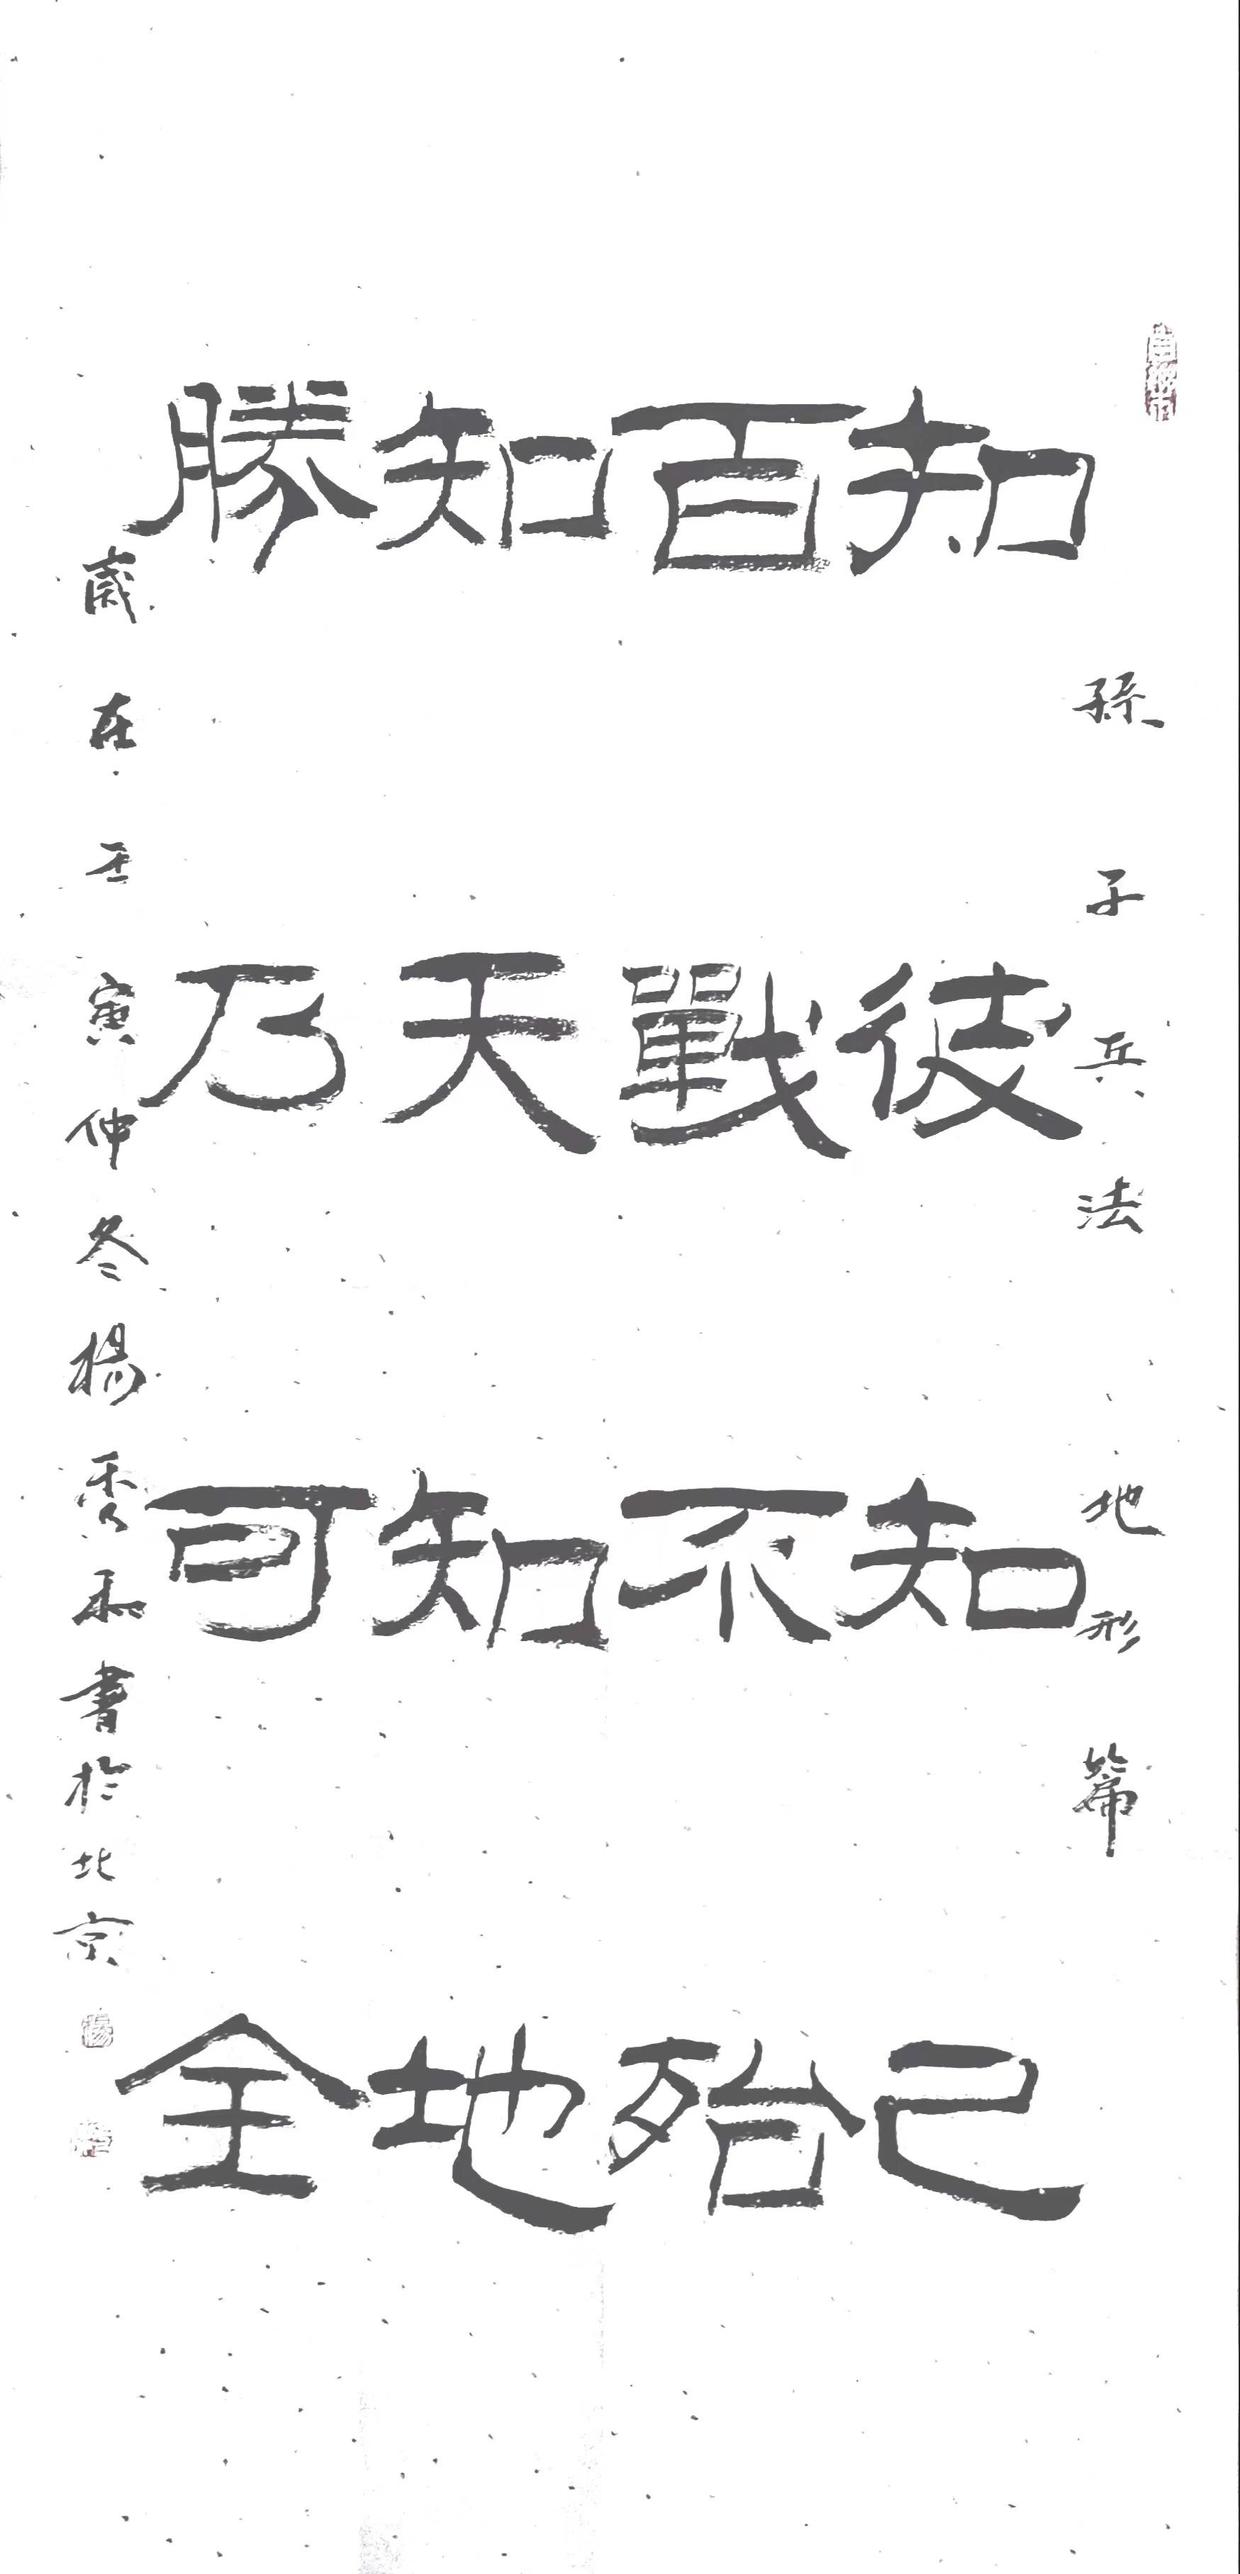 孫子兵法地形篇
知彼知己
百戰不殆
知天知地
勝乃可全
歲在壬寅仲冬楊秀和書於北京
楊